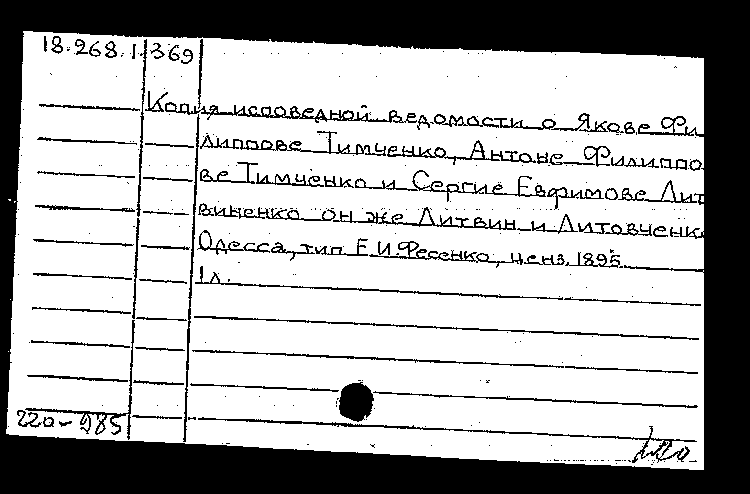 18.268.1.369
Копия исповедной ведомости о Якове Фи
липпове Тимченко, Антоне Филиппо
ве Тимченко и Сергие Евфимове Лит
виненко он же Литвин и Литовченк
Одесса, тип. Е.И.Фесенко, ценз. 1895.
1 л.
22а-985